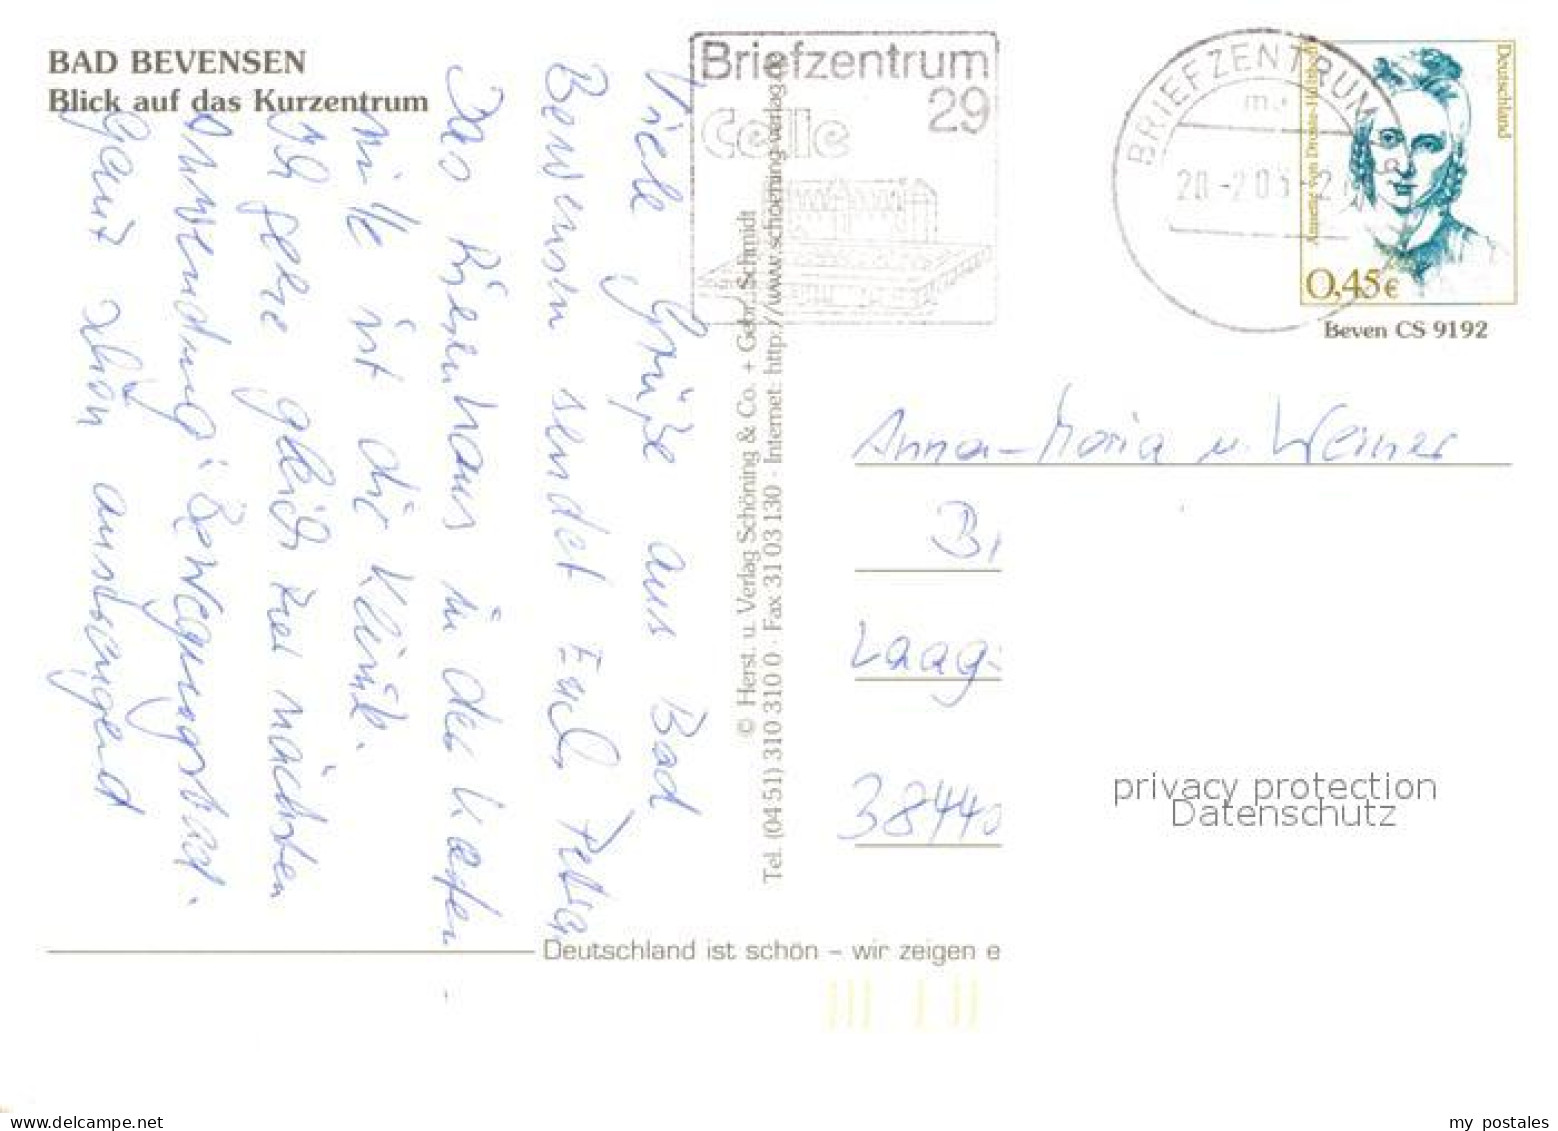 BAD BEVENSEN
Blick auf das Kurzentrum
Viele Grüße aus Bad
Bevensen sendet Euch Petra
Das Riesenhaus in der Hinter
mitte ist die Klinik.
Ich gehe gleich zur nächsten
Anwendung: Bewegungsbad.
Ganz schön anstrengend
© Herst. u. Verlag Schöning & Co. + Gebr. Schmidt
Tel. (04 51) 310 310 0 · Fax 31 03 130 · Internet: http://www.schoening-verlag.de
Briefzentrum
29
Celle
BRIEFZENTRUM
20.-2.03
Deutschland
Annette von Droste-Hülshoff
0,45€
Beven CS 9192
Anna-Maria u. Werner
B
Laag
38440
privacy protection
Datenschutz
Deutschland ist schön – wir zeigen e
my postales